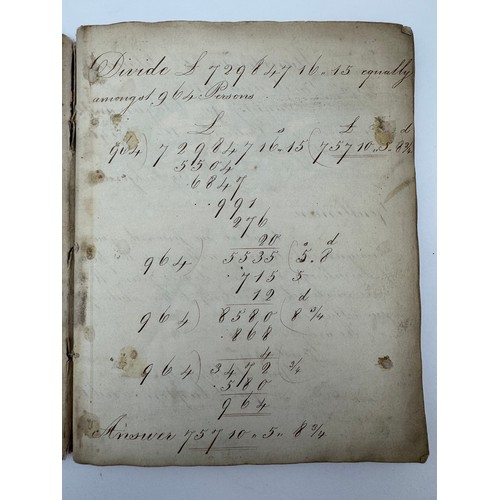 Divide £ 72984716 " 15 equally
amongst 964 Persons
£ s £ d
964 ) 72984716 " 15 ( 75710 " 5 " 8 3/4
5504
6847
991
276
20
964 ) 5535 ( 5 s . 8 d
715 5
12 d
964 ) 8580 ( 8 3/4
868
4
964 ) 3472 ( 3/4
580
964
Answer 75710 " 5 " 8 3/4